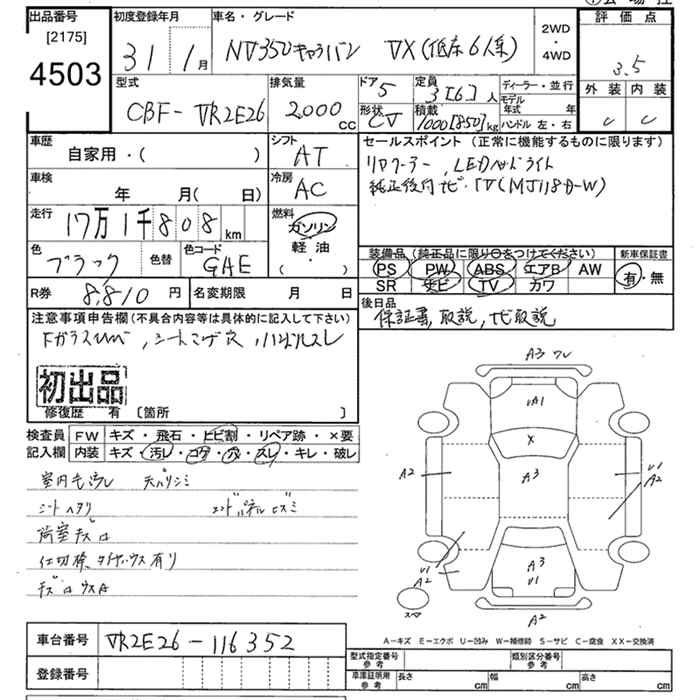 出品番号
[2175]
4503
初度登録年月
31 1月
車名・グレード
NV350キャラバン VX(低床6人乗)
2WD
・
4WD
評価点
3.5
外装 内装
C C
型式
CBF-VR2E26
排気量
2000 cc
ドア 5
形状 CV
定員 3[6]人
積載 1000[850]kg
ディーラー・並行
モデル年式 年
ハンドル 左・右
車歴
自家用・( )
シフト AT
車検
年 月( 日)
冷房 AC
走行
17万1千808km
燃料
ガソリン
軽油
( ・ )
色
ブラック
色替
色コード
GAE
R券 8,810円
名変期限 月 日
セールスポイント(正常に機能するものに限ります)
リヤクーラー, LEDヘッドライト
純正後付ナビ・TV(MJ118D-W)
装備品(純正品に限り○をつけてください)
PS PW ABS エアB AW
SR ナビ TV カワ
新車保証書
有・無
後日品
保証書, 取説, ナビ取説
注意事項申告欄(不具合内容等は具体的に記入して下さい)
FガラスUVヒビ, シートコゲ穴, ハンドルスレ
初出品
修復歴 有 [箇所 ]
検査員 FW キズ・飛石・ヒビ割・リペア跡・×要
記入欄 内装 キズ・汚レ・コゲ・穴・スレ・キレ・破レ
室内モウレ 天バリシミ
シートヘタリ エンドパネルビスミ
荷室キズロ
仕切棒, タイヤハウス有り
キズロウスA
A3 ワレ
UA1
X
A3
A2
U1
A2
U1
A2
A3
U1
A2
スマ
A-キズ E-エクボ U-凹み W-補修跡 S-サビ C-腐食 XX-交換済
車台番号 VR2E26-116352
登録番号
型式指定番号 参考
類別区分番号 参考
車庫証明用 参考 長さ cm 幅 cm 高さ cm